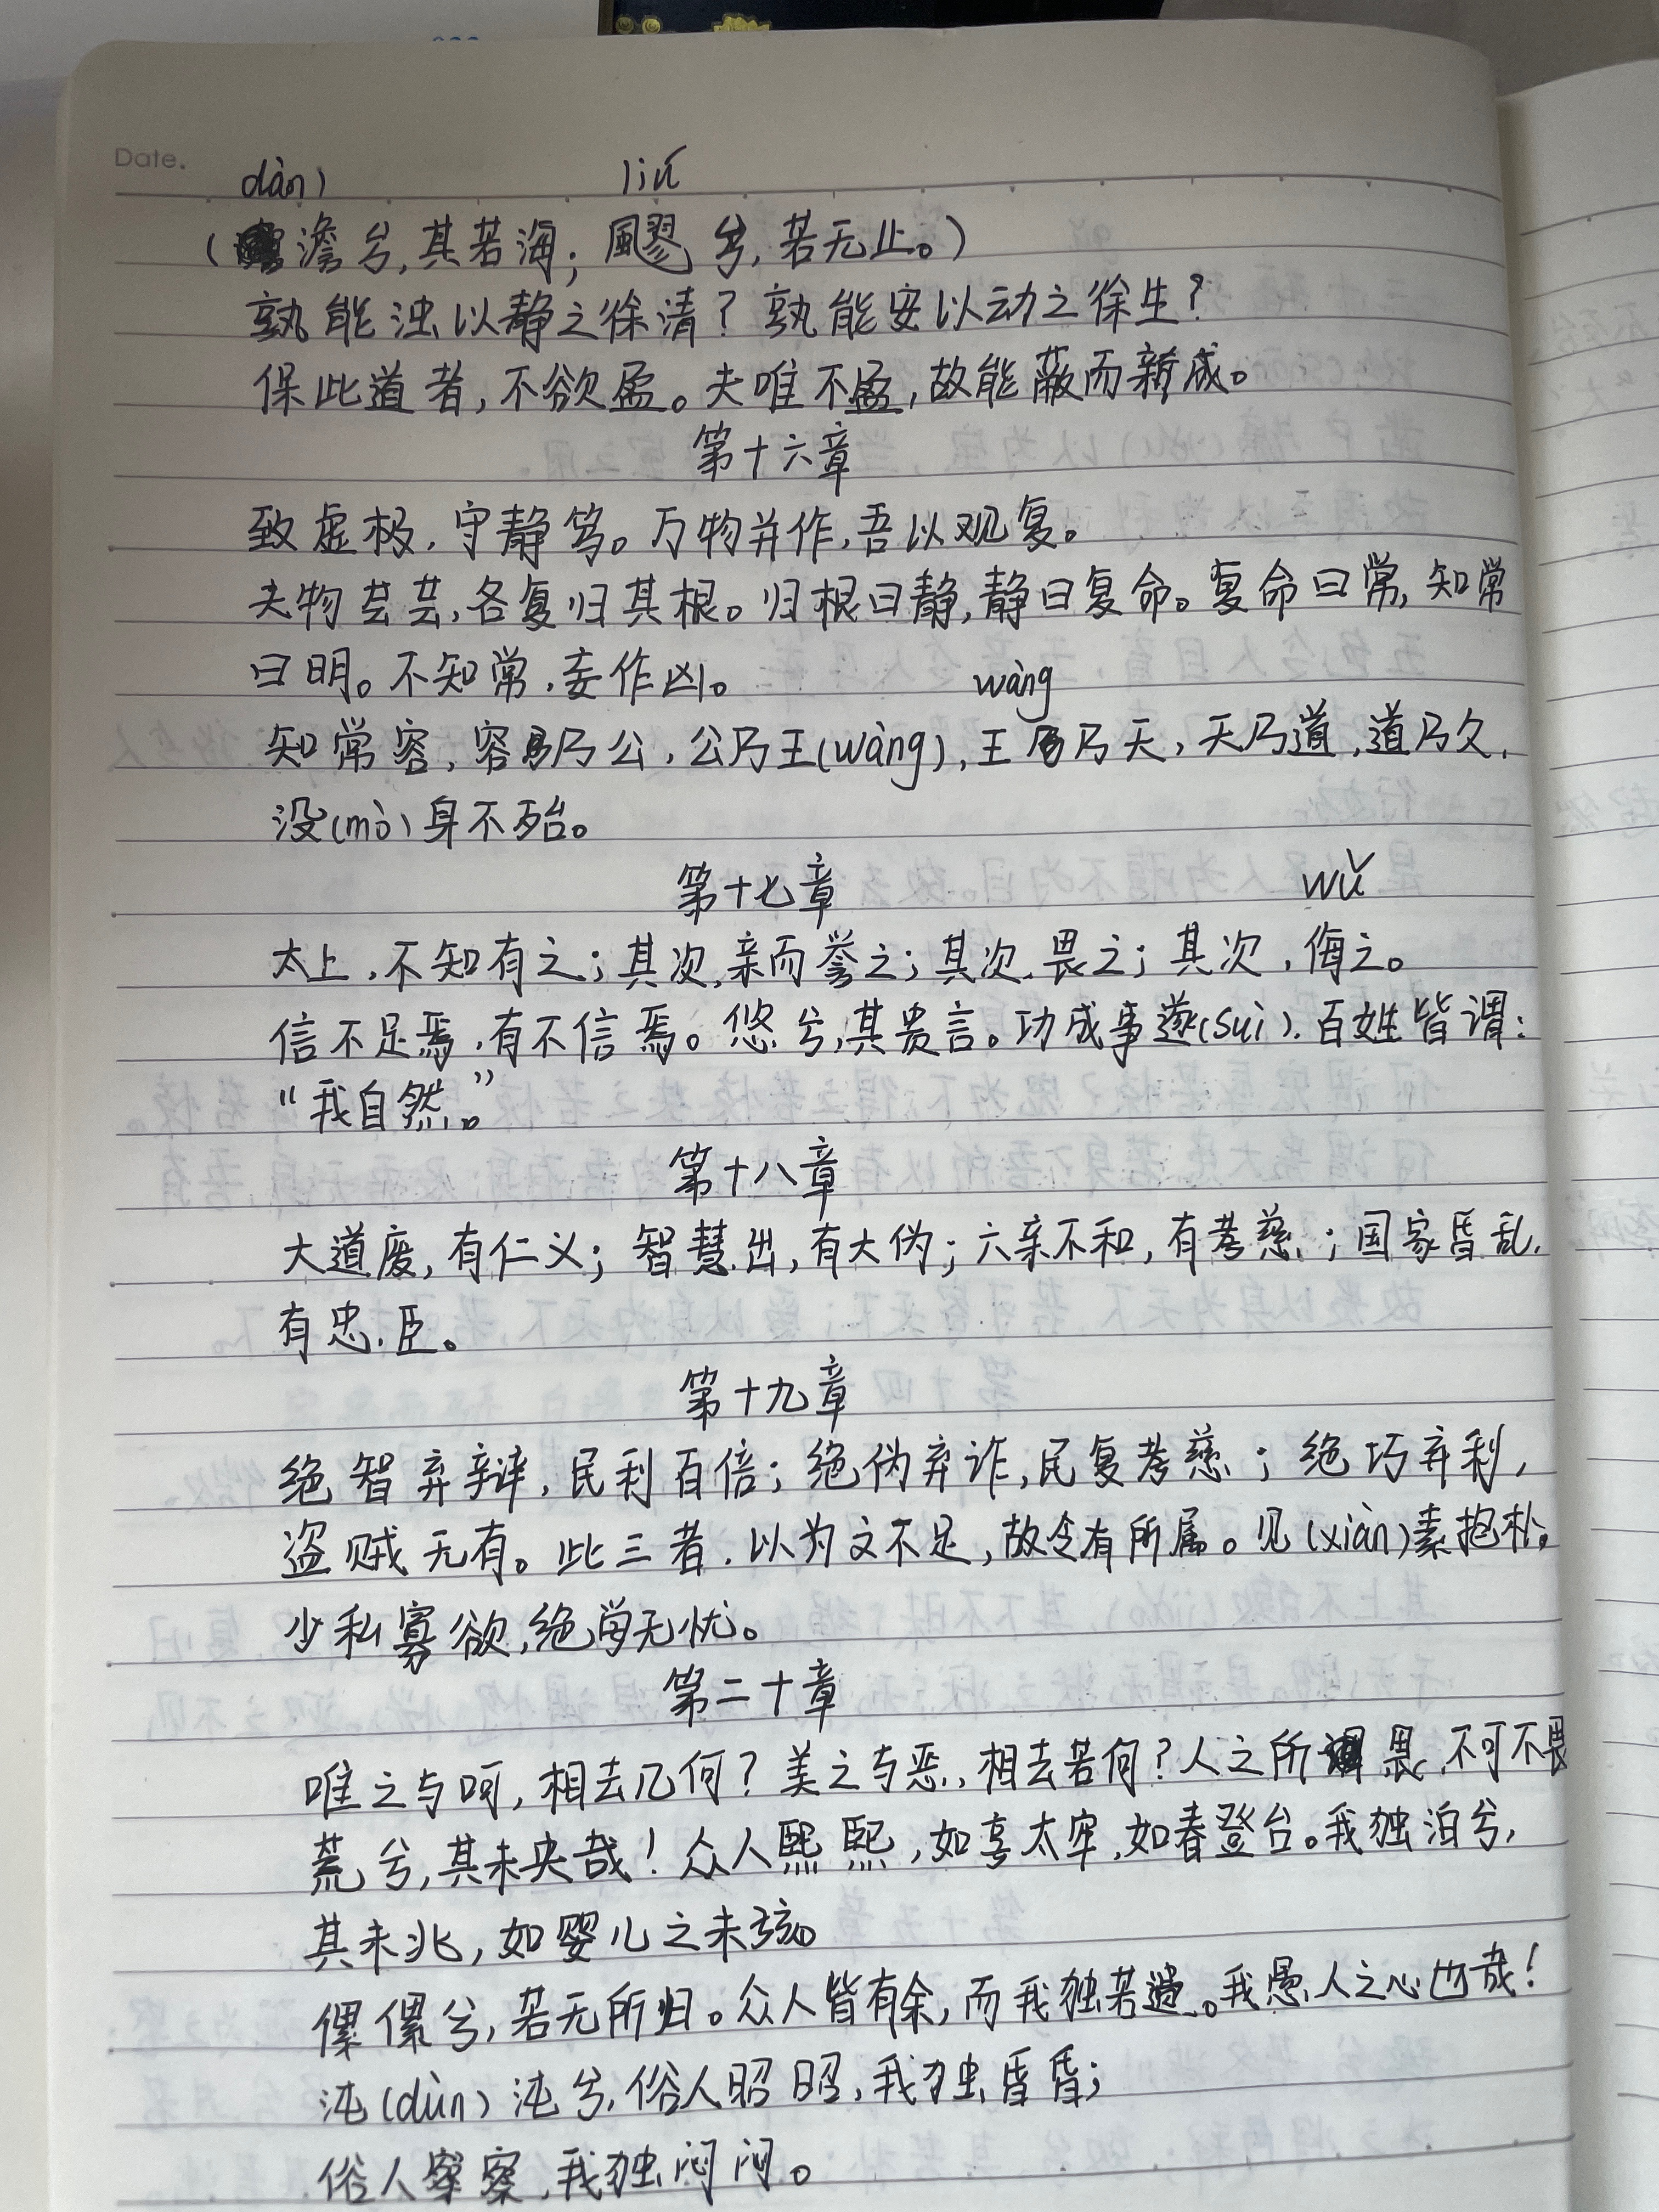 Date.
dàn) liú
(澹兮,其若海;飂兮,若无止。)
孰能浊以静之徐清?孰能安以动之徐生?
保此道者,不欲盈。夫唯不盈,故能蔽而新成。
第十六章
致虚极,守静笃。万物并作,吾以观复。
夫物芸芸,各复归其根。归根曰静,静曰复命。复命曰常,知常
曰明。不知常,妄作凶。
wàng
知常容,容乃公,公乃王(wàng),王乃天,天乃道,道乃久,
没(mò)身不殆。
第十七章
wǔ
太上,不知有之;其次,亲而誉之;其次,畏之;其次,侮之。
信不足焉,有不信焉。悠兮,其贵言。功成事遂(suì),百姓皆谓:
“我自然。”
第十八章
大道废,有仁义;智慧出,有大伪;六亲不和,有孝慈;国家昏乱,
有忠臣。
第十九章
绝智弃辩,民利百倍;绝伪弃诈,民复孝慈;绝巧弃利,
盗贼无有。此三者,以为文不足,故令有所属。见(xiàn)素抱朴,
少私寡欲,绝学无忧。
第二十章
唯之与呵,相去几何?美之与恶,相去若何?人之所畏,不可不畏
荒兮,其未央哉!众人熙熙,如享太牢,如春登台。我独泊兮,
其未兆,如婴儿之未孩。
傫傫兮,若无所归。众人皆有余,而我独若遗。我愚人之心也哉!
沌(dùn)沌兮,俗人昭昭,我独昏昏;
俗人察察,我独闷闷。